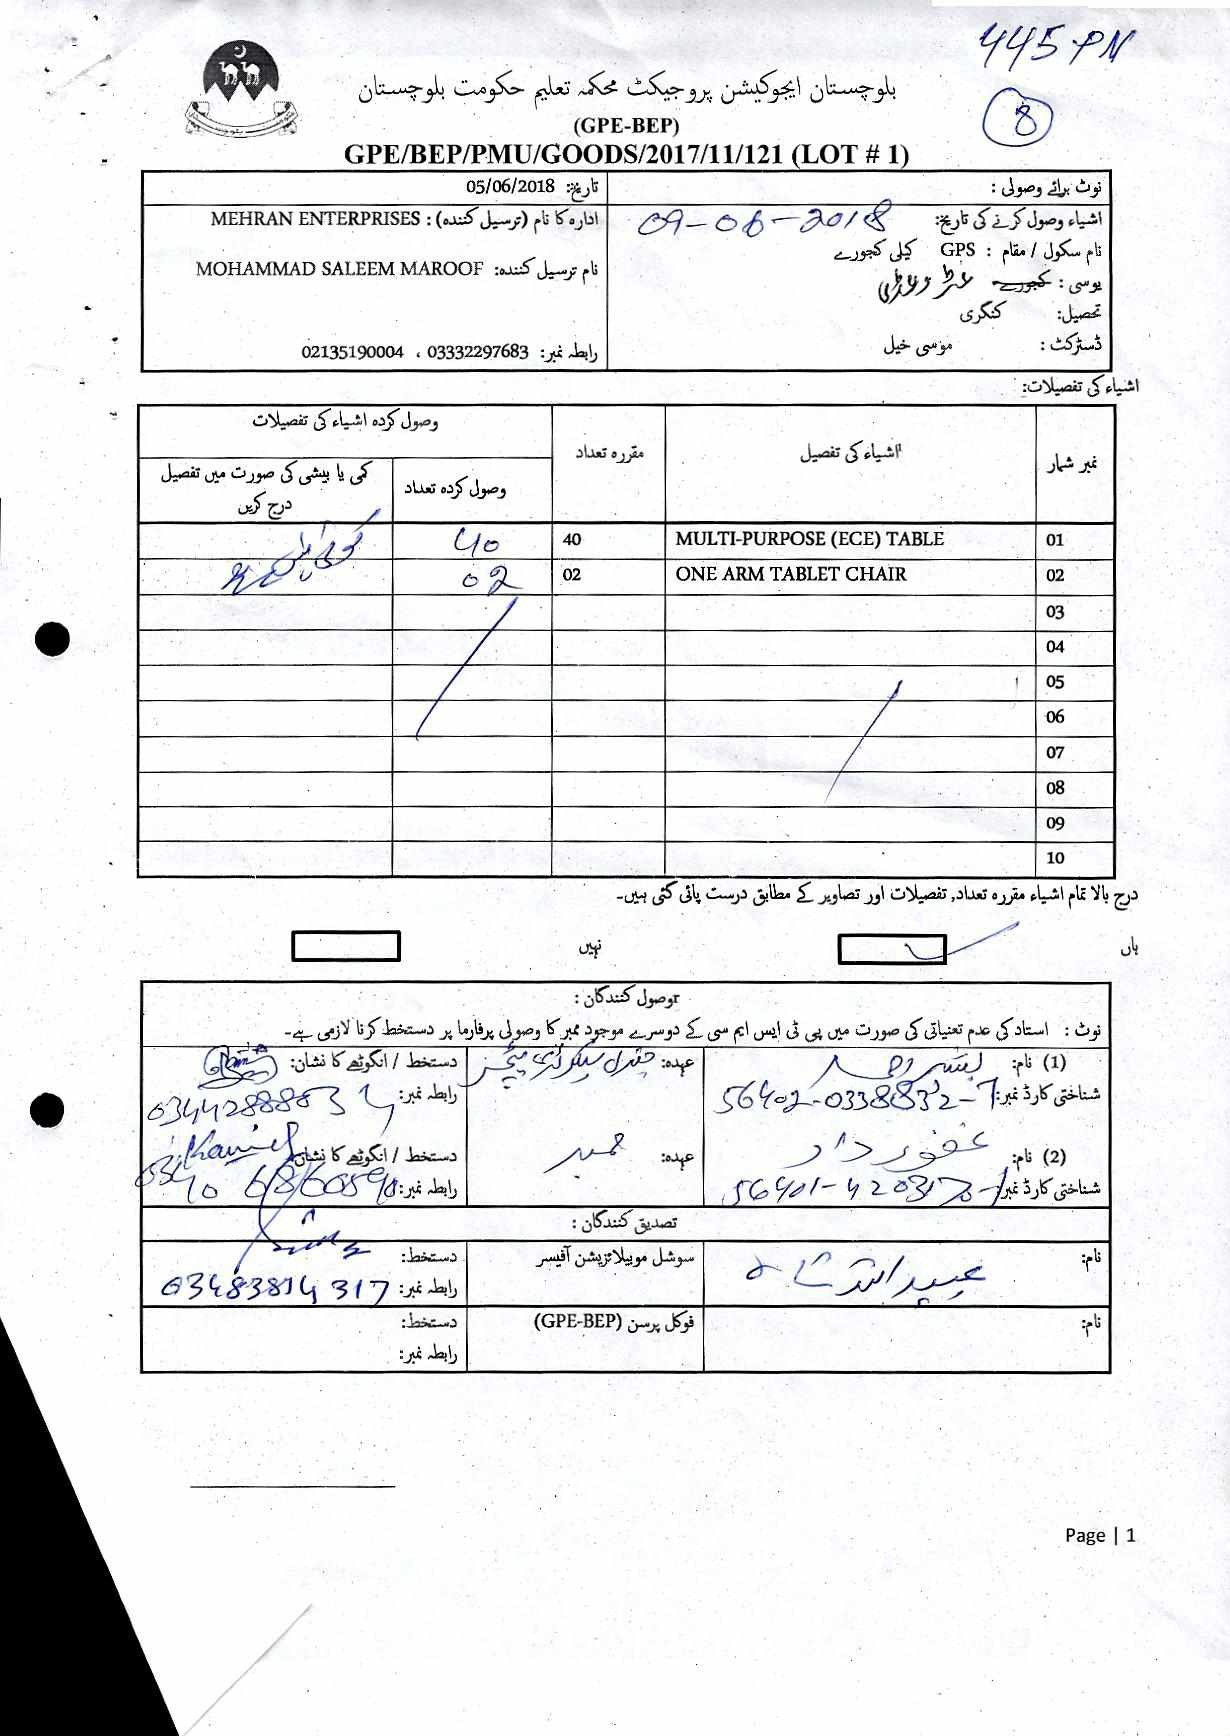 445 PN
8
بلوچستان ایجوکیشن پروجیکٹ محکمہ تعلیم حکومت بلوچستان
(GPE-BEP)
GPE/BEP/PMU/GOODS/2017/11/121 (LOT # 1)
نوٹ برائے وصولی :
تاریخ: 05/06/2018
اشیاء وصول کرنے کی تاریخ: 09-06-2018
ادارہ کا نام (ترسیل کنندہ) : MEHRAN ENTERPRISES
نام سکول / مقام : GPS کیلی کجورے
نام ترسیل کنندہ: MOHAMMAD SALEEM MAROOF
یوسی : کجورے
تحصیل: کنگری
ڈسٹرکٹ : موسی خیل
رابطہ نمبر: 03332297683 ، 02135190004
اشیاء کی تفصیلات:
نمبر شمار اشیاء کی تفصیل مقررہ تعداد وصول کردہ اشیاء کی تفصیلات
وصول کردہ تعداد کمی یا بیشی کی صورت میں تفصیل درج کریں
01 MULTI-PURPOSE (ECE) TABLE 40 40
02 ONE ARM TABLET CHAIR 02 02
03
04
05
06
07
08
09
10
درج بالا تمام اشیاء مقررہ تعداد, تفصیلات اور تصاویر کے مطابق درست پائی گئی ہیں۔
ہاں نہیں
وصول کنندگان :
نوٹ : استاد کی عدم تعنیاتی کی صورت میں پی ٹی ایس ایم سی کے دوسرے موجود ممبر کا وصولی پرفارما پر دستخط کرنا لازمی ہے۔
(1) نام: عہدہ: جنرل سیکرٹری دستخط / انگوٹھے کا نشان:
شناختی کارڈ نمبر: 56402-0338832-7 رابطہ نمبر:
(2) نام: غفور داد عہدہ: ممبر دستخط / انگوٹھے کا نشان:
شناختی کارڈ نمبر: رابطہ نمبر:
تصدیق کنندگان :
نام: عبید اللہ شاہ سوشل موبیلائزیشن آفیسر دستخط:
رابطہ نمبر: 03483814317
نام: فوکل پرسن (GPE-BEP) دستخط:
رابطہ نمبر:
Page | 1